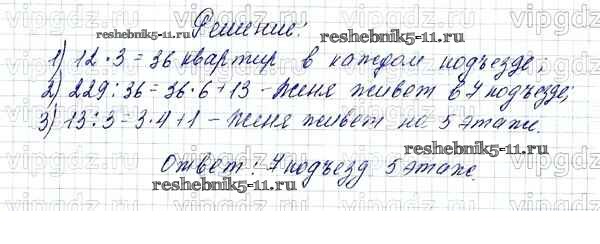 Решение:
reshebnik5-11.ru
1) 12·3=36 квартир в каждом подъезде;
reshebnik5-11.ru
2) 229:36=36·6+13 - Женя живет в 7 подъезде;
3) 13:3=3·4+1 - Женя живет на 5 этаже.
reshebnik5-11.ru
Ответ: 7 подъезд 5 этаж.
reshebnik5-11.ru